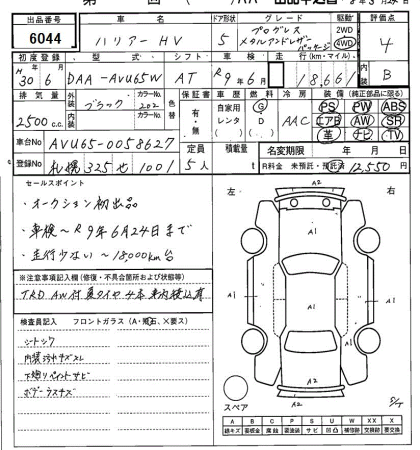 出品番号 車名 ドア形状 グレード 駆動 評価点
6044 ハリアー HV 5 プログレス メタルアンドレザーパッケージ 2WD 4WD 4
初度登録 型式 シフト 車検 走行(km・マイル) 内装 B
H30 6 DAA-AVU65W AT R9年6月 18,661
排気量 外装 ブラック カラーNo. 202 色替 保証書 車歴 燃料 冷房 装備(純正部品に限る)
2500 c.c. 内装 カラーNo. 有・無 自家用 レンタ G D AAC PS PW ABS
エアB AW SR
革 ナビ TV
車台No AVU65-0058627 定員 積載量 名変期限 年 月 日
登録No 札幌 325 も 1001 5人 t R料金 未預託・預託済 12,550 円
セールスポイント
・オークション初出品
・車検〜R9年6月24日まで
・走行少ない〜18000km台
※注意事項記入欄(修復・不具合箇所および状態等)
TRD AW付 夏タイヤ4本車内積込有
検査員記入 フロントガラス(A・飛石、×要ス)
内装汚キズスレ
下廻りペイントサビ
ボデーウスキズ
左 右
A2
A1
A1 A1 A1
A1
A2
スペア
A B C P S U W X XX
線キズ 要板金 腐蝕 要塗装 サビ 凹凸 補修跡 交換跡 要交換